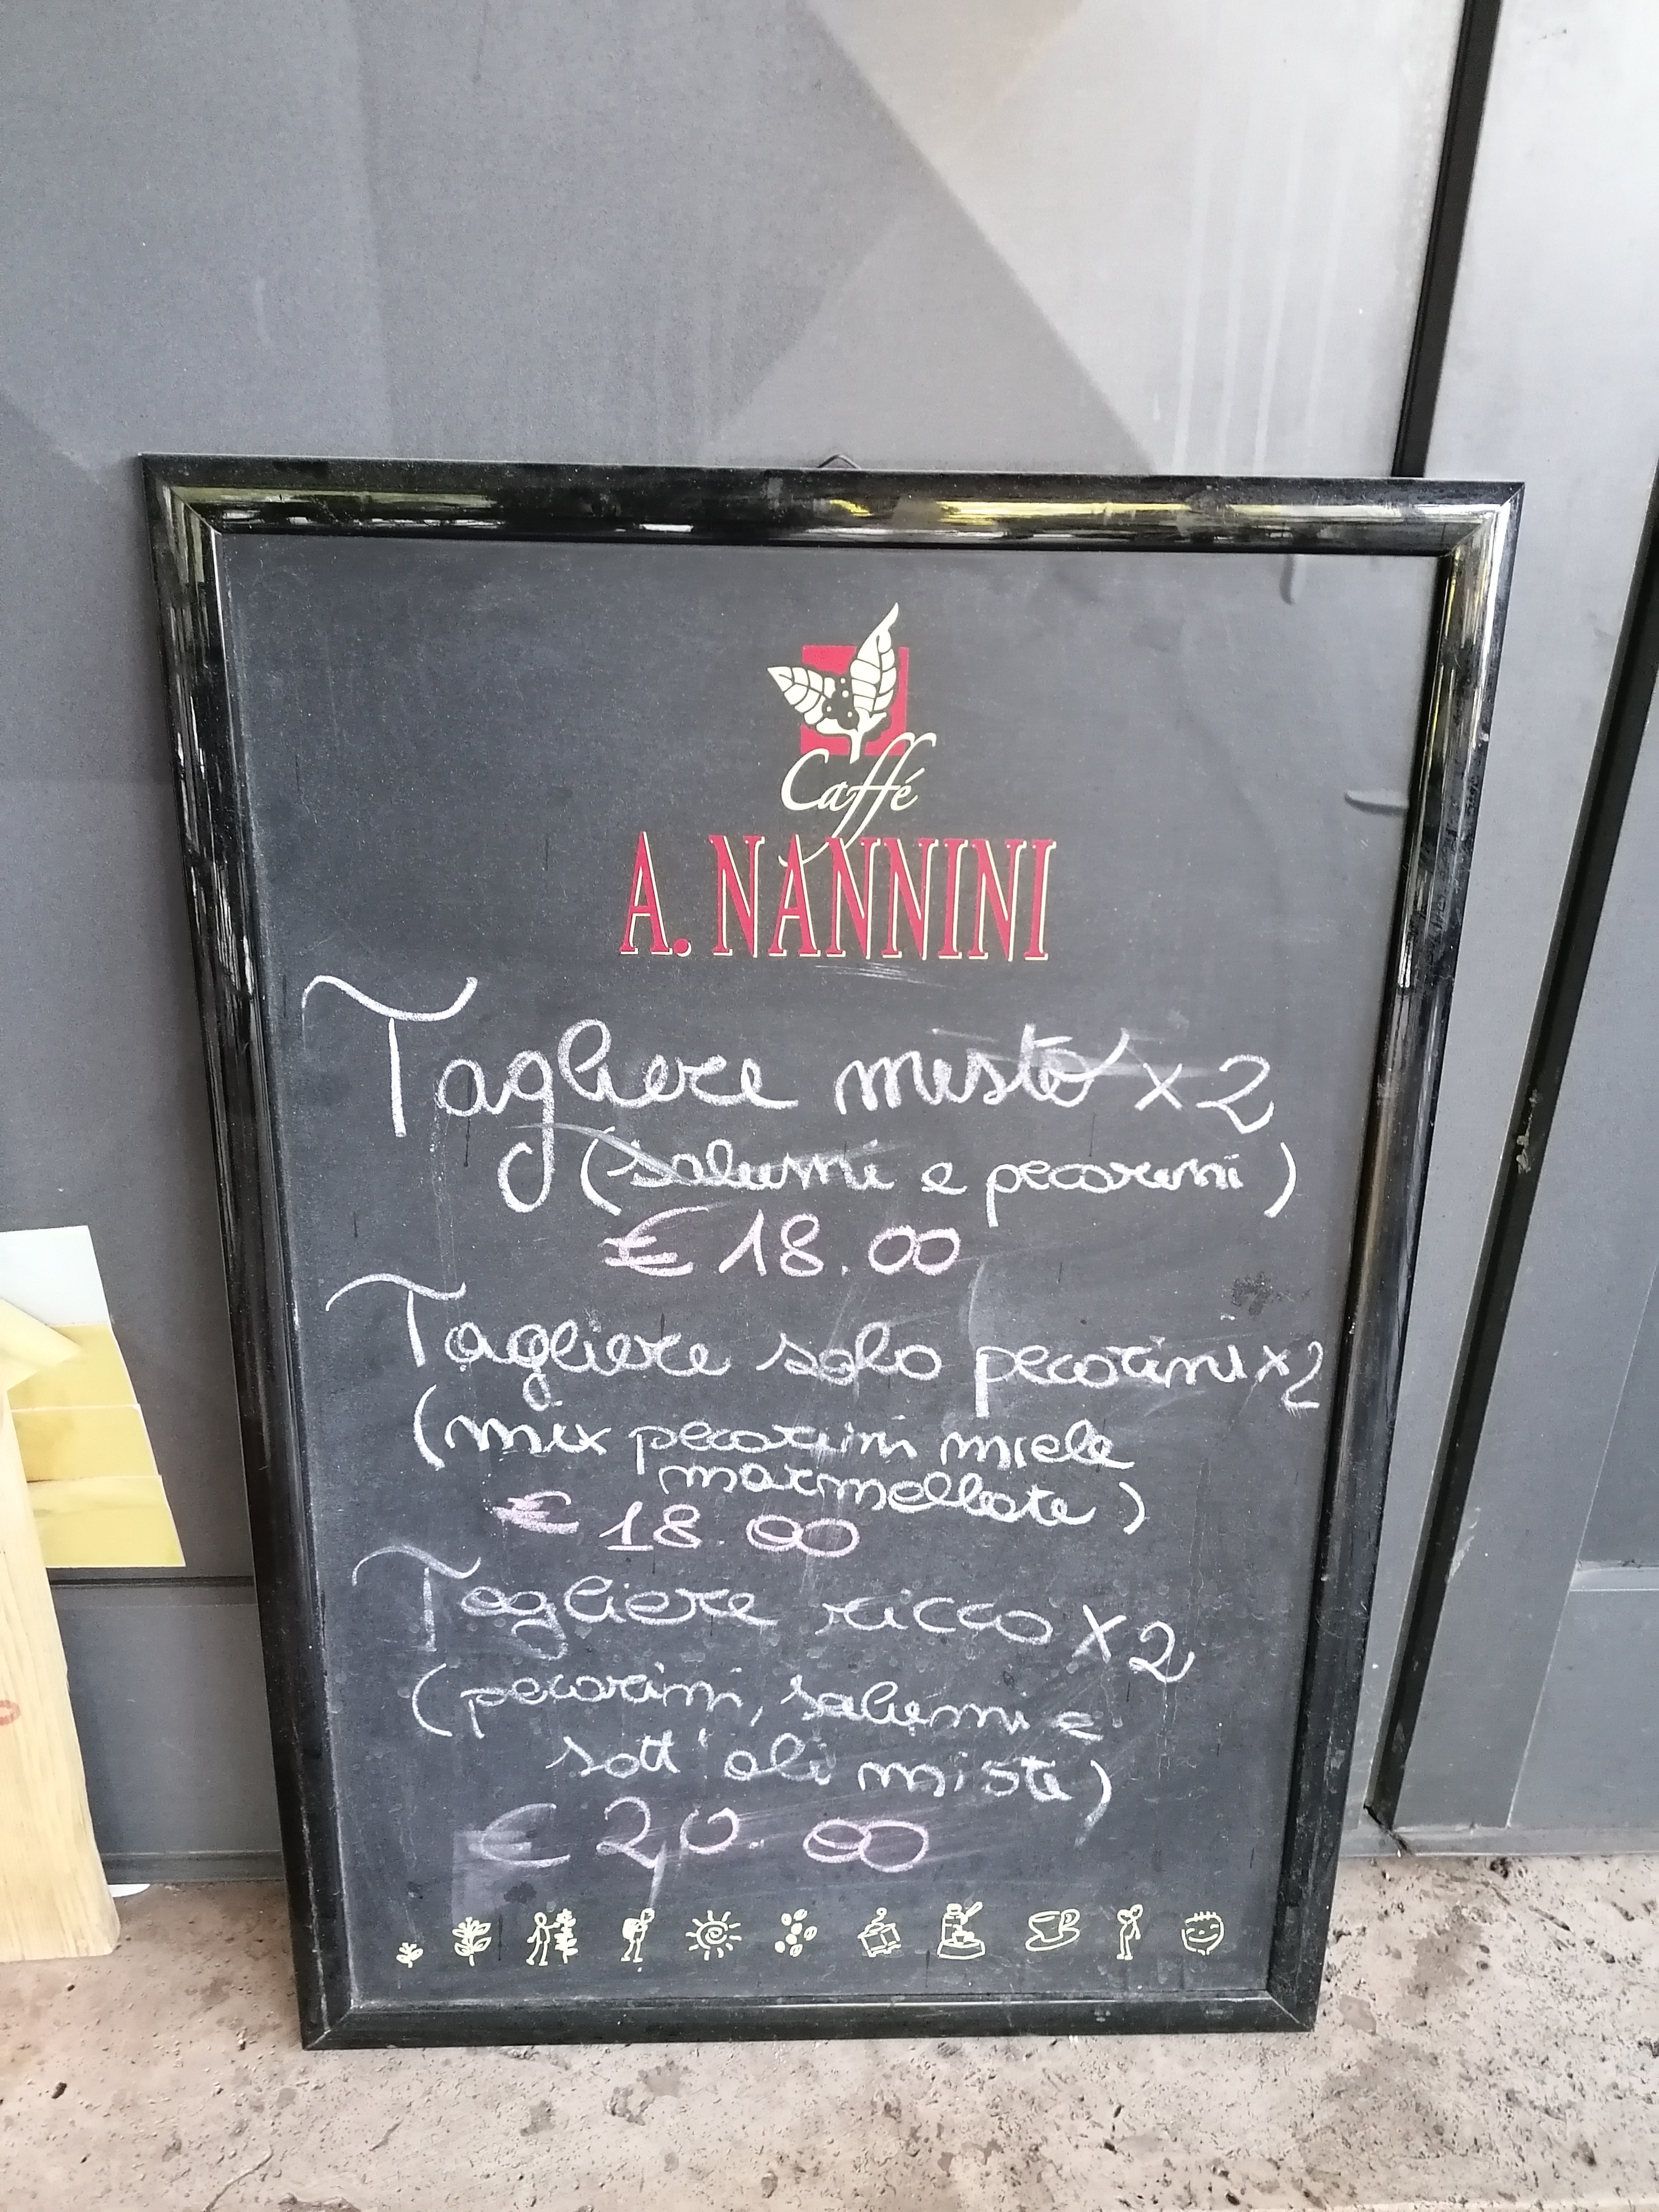 Caffé
A. NANNINI
Tagliere misto x2
(salumi e pecorini)
€ 18.00
Tagliere solo pecorini x2
(mix pecorini miele
marmellate)
€ 18.00
Tagliere ricco x2
(pecorini, salumi e
sott'oli misti)
€ 20.00